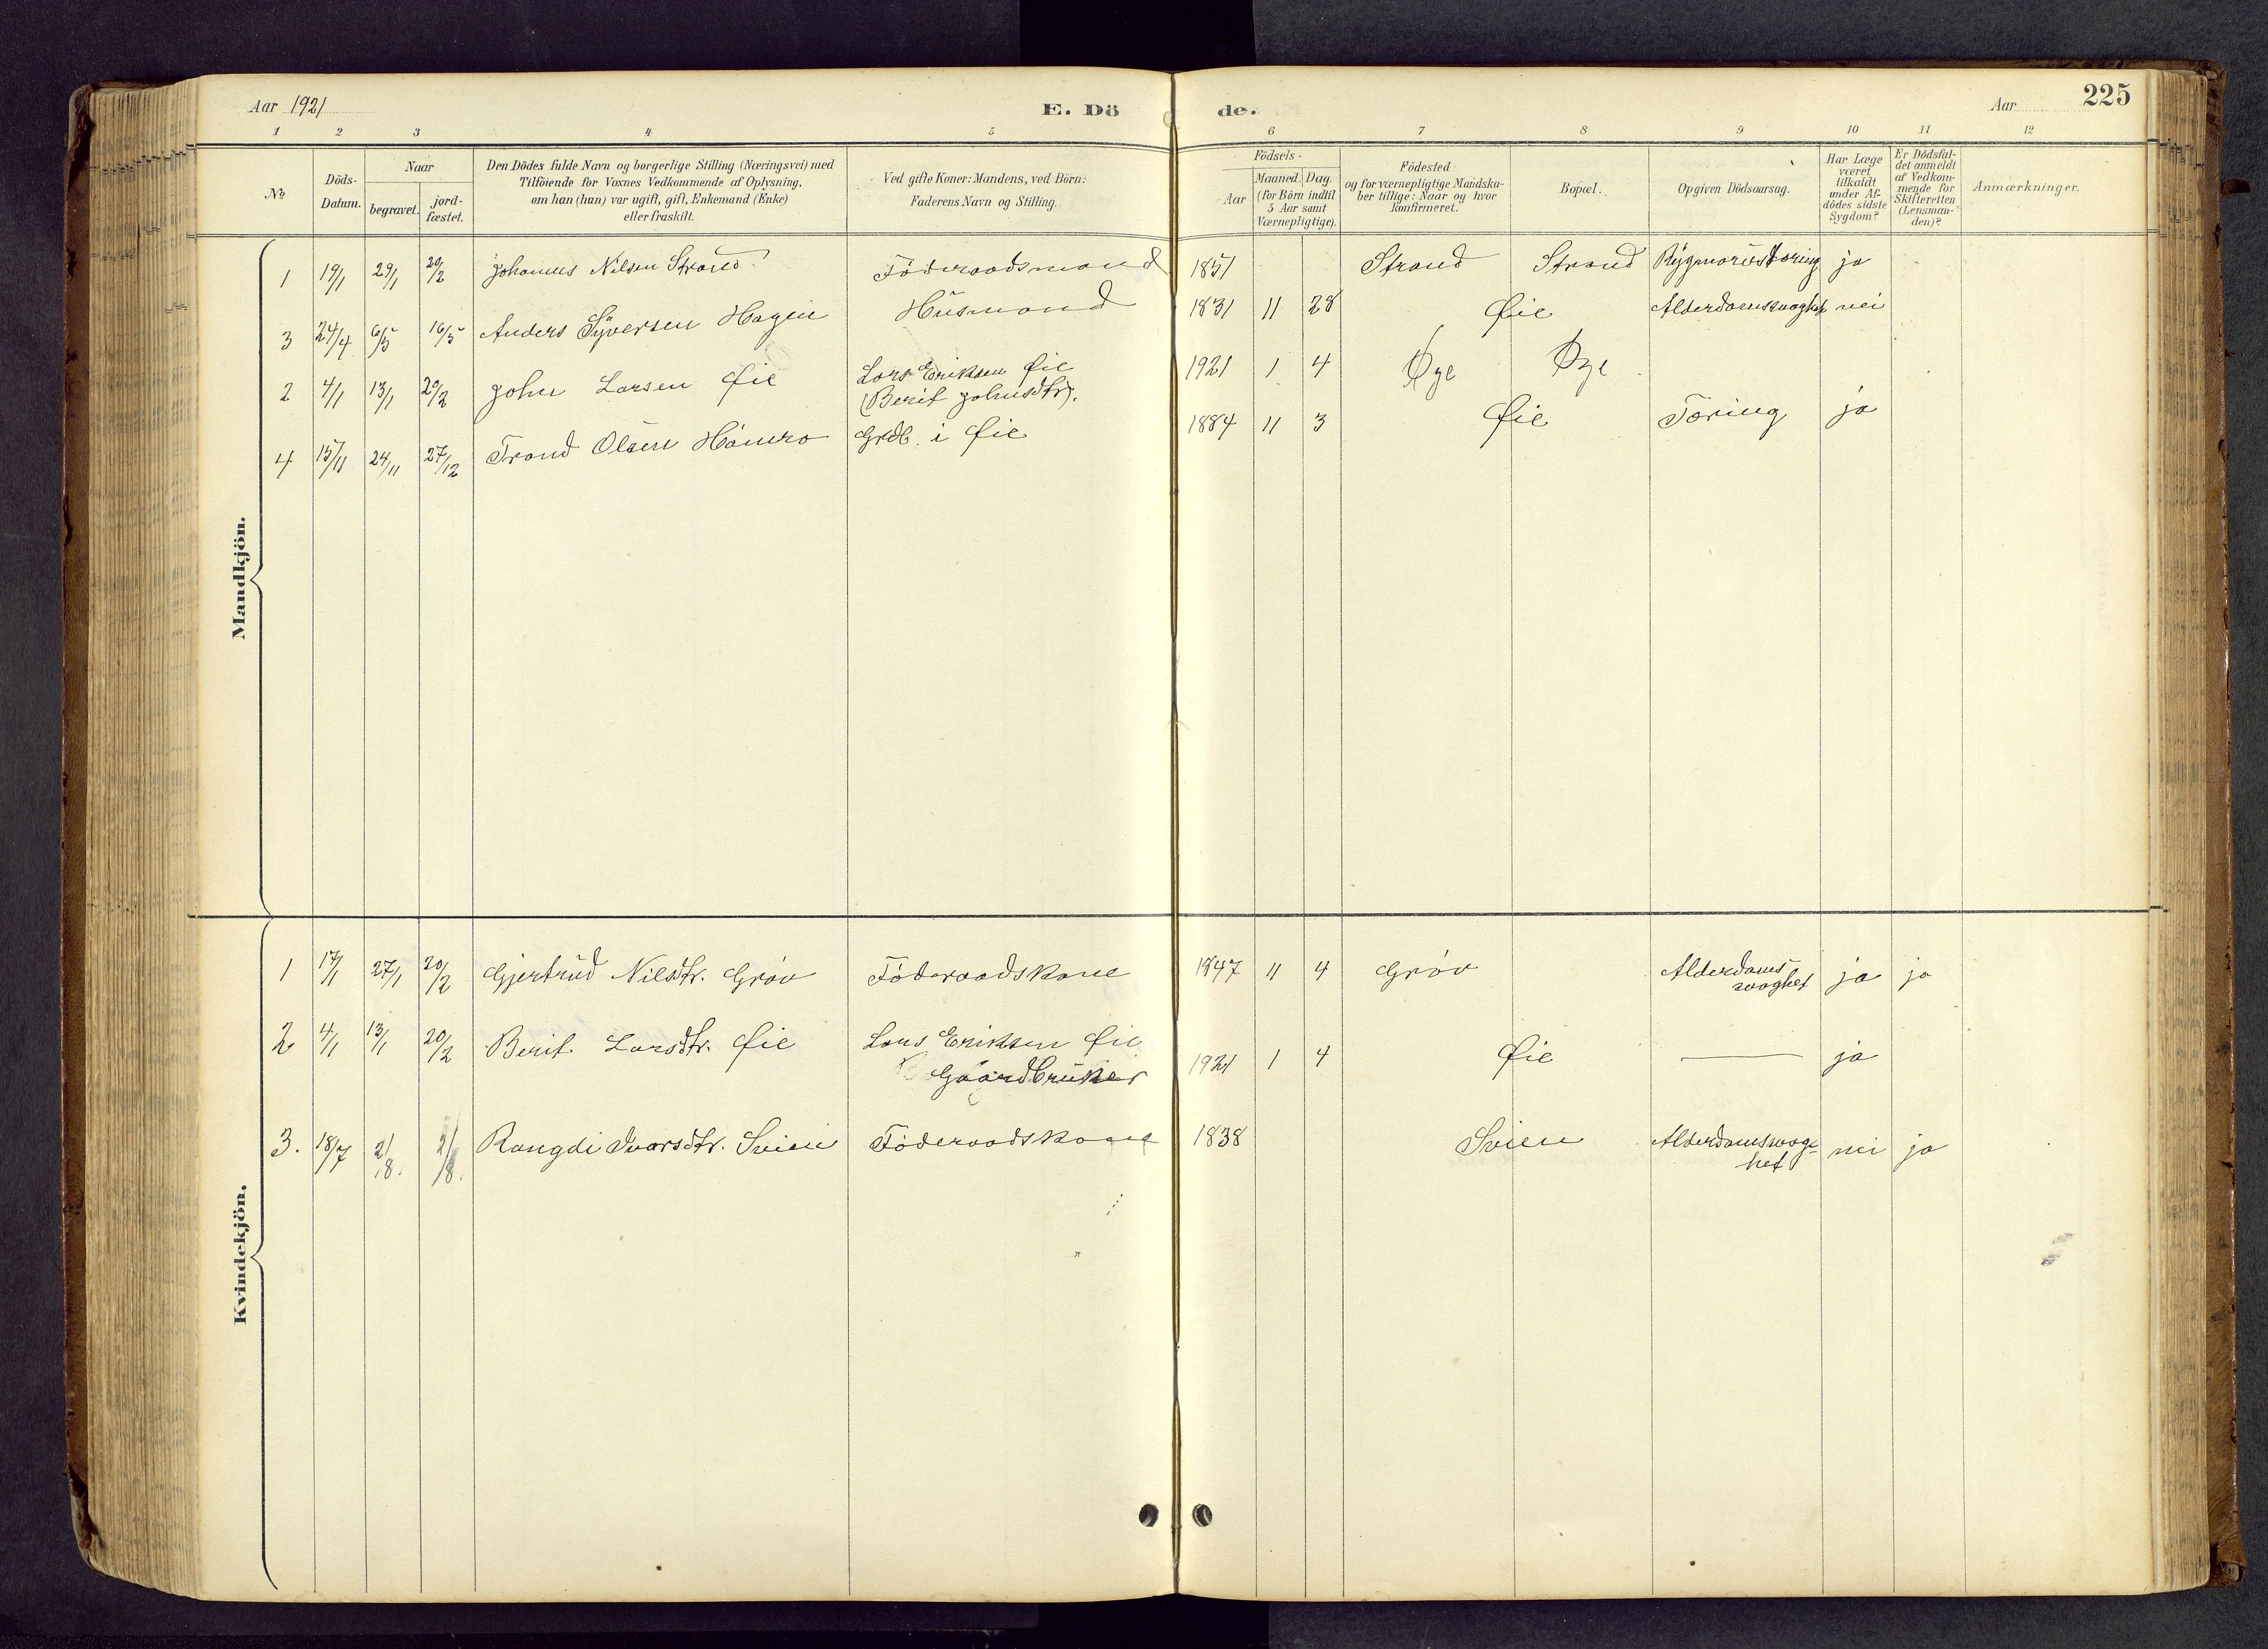 Aar 1921 E. Dö de. Aar 225
1 2 3 4 5 6 7 8 9 10 11 12
No
Döds-
Datum.
Naar
begravet.
jord-
fæstet.
Den Dödes fulde Navn og borgerlige Stilling (Næringsvei) med
Tilföiende for Voxnes Vedkommende af Oplysning,
om han (hun) var ugift, gift, Enkemand (Enke)
eller fraskilt.
Ved gifte Koner: Mandens, ved Börn:
Faderens Navn og Stilling.
Födsels-
Aar
Maaned. Dag.
(for Börn indtil
5 Aar samt
Værnepligtige).
Födested
og for værnepligtige Mandska-
ber tillige: Naar og hvor
konfirmeret.
Bopæl.
Opgiven Dödsaarsag.
Har Læge
været
tilkaldt
under Af-
dödes sidste
Sygdom?
Er Dödsfal-
det anmeldt
af Vedkom-
mende for
Skifteretten
(Lensman-
den)?
Anmærkninger.
Mandkjön.
1 19/1 29/1 20/2 Johannes Nilsen Strand Föderaadsmand 1851 Strand Strand Rygmarvstæring ja
3 24/4 6/5 16/5 Anders Syversen Hagen Husmand 1831 11 28 Øie Alderdomssvaghet nei
2 4/1 13/1 20/2 John Larsen Øie Lars Eriksen Øie
(Berit Johnsdtr). 1921 1 4 Øye Øye
4 15/11 24/11 27/12 Trond Olsen Hamro Grdb. i Øie 1884 11 3 Øie Tæring ja
Kvindekjön.
1 17/1 27/1 20/2 Gjertrud Nilsdtr. Grøv Föderaadskone 1847 11 4 Grøv Alderdoms-
svaghet ja ja
2 4/1 13/1 20/2 Berit Larsdtr. Øie Lars Eriksen Øie
Gaardbruker 1921 1 4 Øie — ja
3. 18/7 2/8. 2/8. Rangdi Ivarsdtr. Svien Föderaadskone 1838 Svien Alderdomssvag-
het nei ja